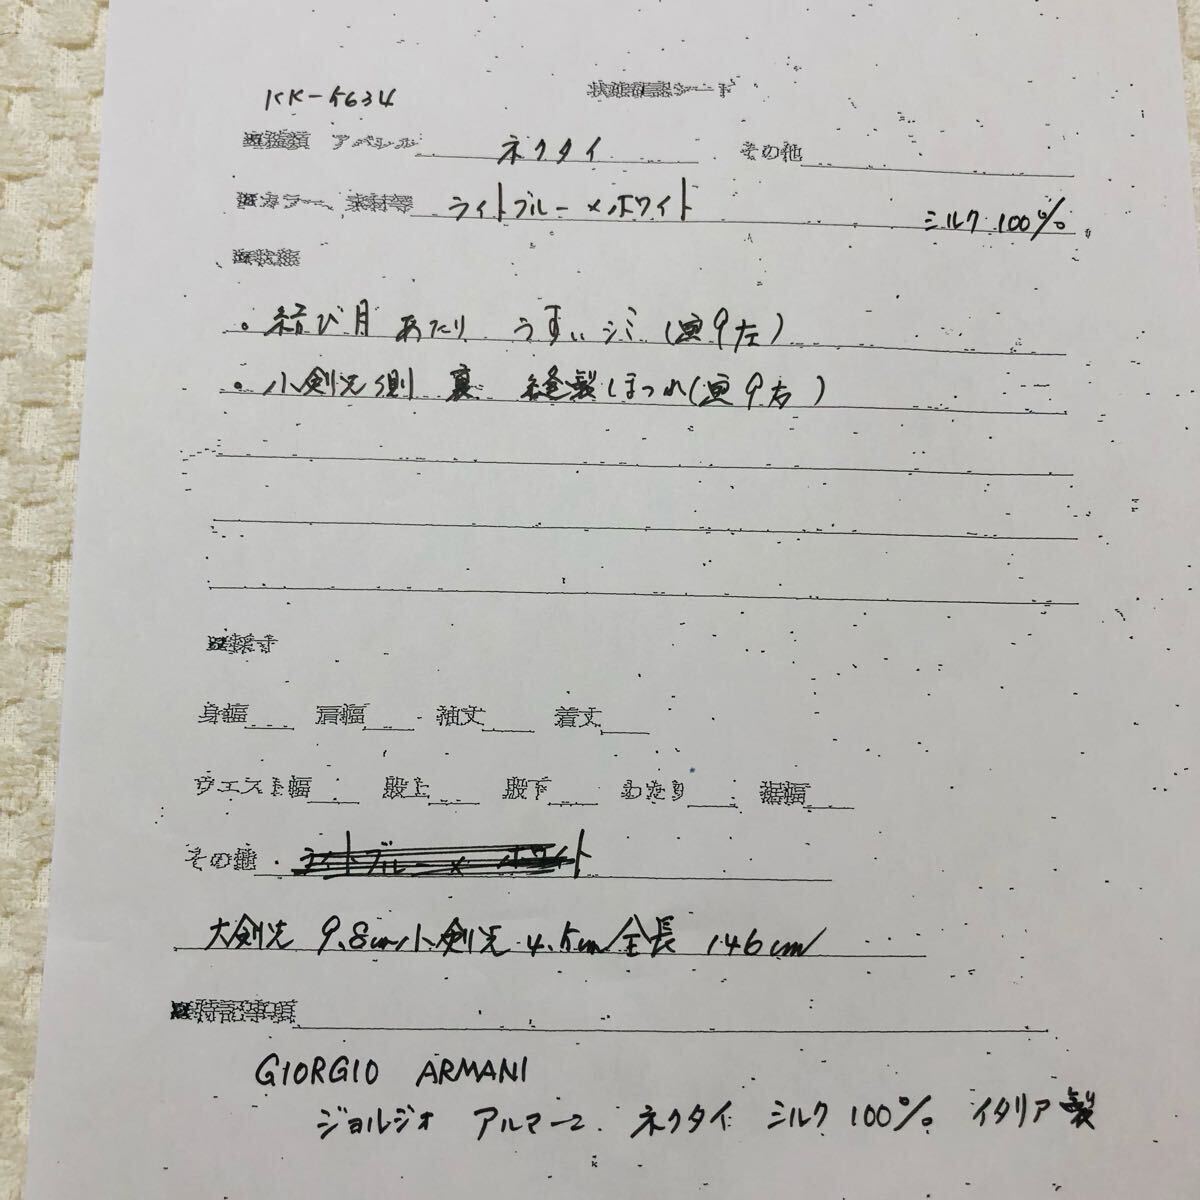 KK-5634
状態確認シート
■種類 アパレル ネクタイ その他
■カラー、素材等 ライトブルー×ホワイト シルク100%
■状態
・結び目あたり うすいシミ(画9左)
・小剣先側 裏 縫製ほつれ(画9右)
■採寸
身幅 肩幅 袖丈 着丈
ウエスト幅 股上 股下 わたり 裾幅
その他 ・ライトブルー×ホワイト
大剣先 9.8cm小剣先 4.5cm全長 146cm
■特記事項
GIORGIO ARMANI
ジョルジオ アルマーニ ネクタイ シルク100% イタリア製